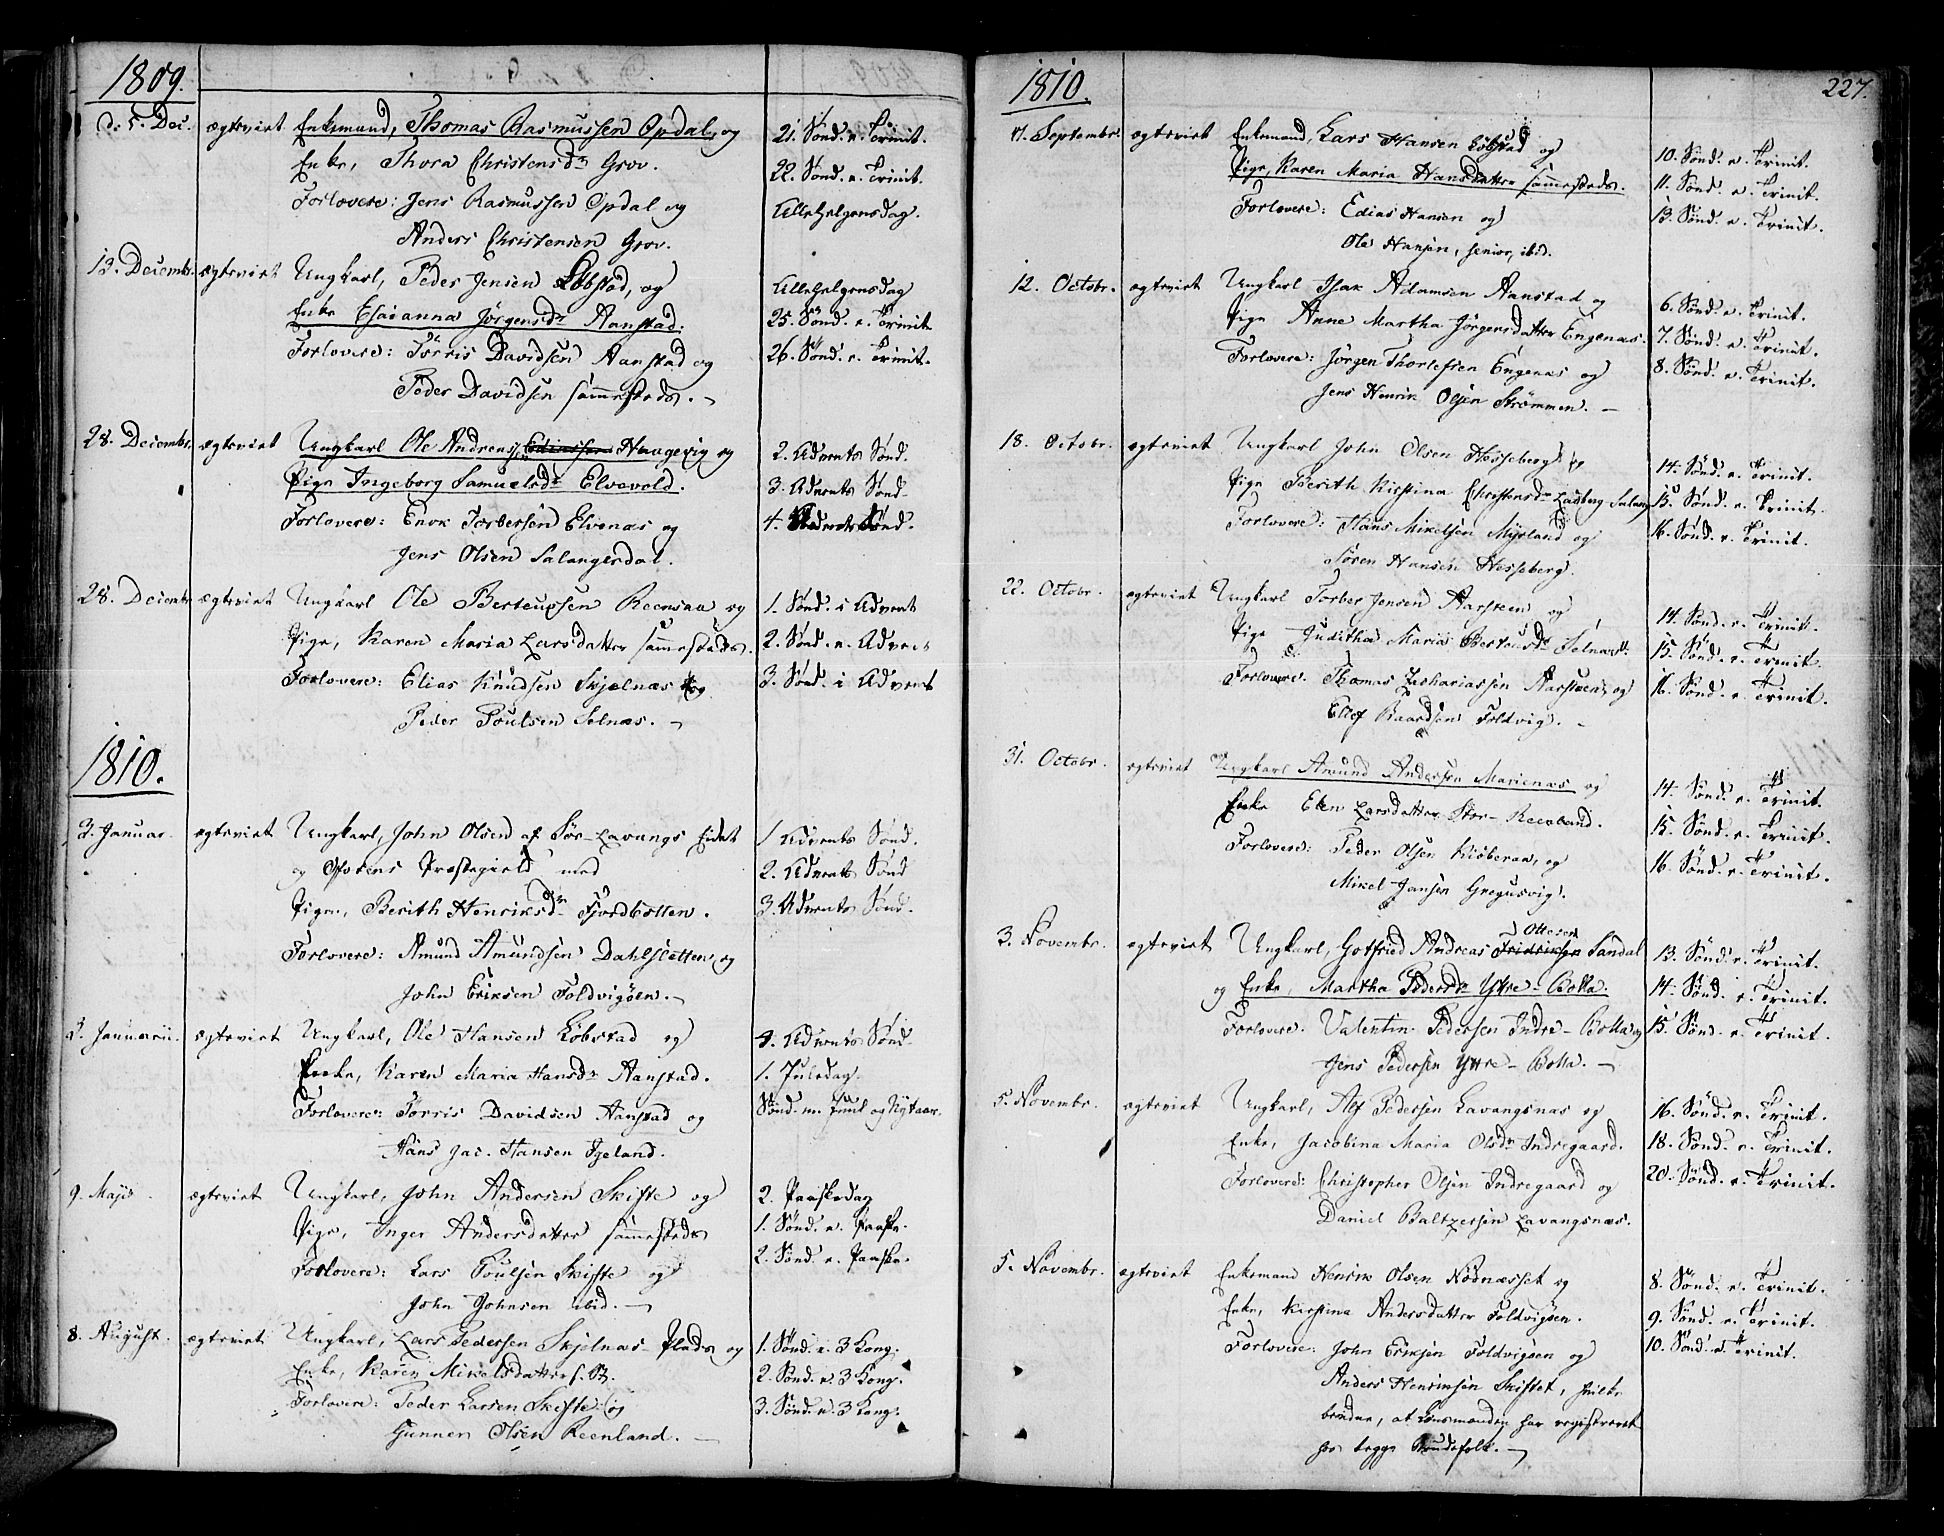 1809.
d. 5. Dec. ægteviet Enkemand, Thomas Rasmussen Opdal, og 21. Sønd. e. Trinit.
Enke, Thora Christensdr Grov. 22. Sønd. e. Trinit.
Forlovere: Jens Rasmussen Opdal og AlleHelgensdag.
Anders Christensen Grov.
13. Decembr. ægteviet Ungkarl, Peder Jensen Løbstad, og AlleHelgensdag
Enke Esaianna Jørgensdr Aanstad. 25. Sønd. e. Trinit.
Forlovere: Tørris Davidsen Aanstad og 26. Sønd. e. Trinit.
Peder Davidsen sammesteds.
28. Decembr. ægteviet Ungkarl Ole Andreas Haugevig og 2. Advents Sønd.
Pige Ingeborg Samuelsdr Elvevold. 3. Advents Sønd.
Forlovere: Enok Torbersen Elvenæs og 4. Advents Sønd.
Jens Olsen Salangsdal.
28. Decembr ægteviet Ungkarl Ole Berteussen Reensaa og 1. Sønd. i Advent
Pige, Karen Maria Larsdatter sammesteds. 2. Sønd. e. Advent
Forlovere: Elias Knudsen Skjelnæs og 3. Sønd. i Advent
Peder Poulsen Selnæs.
1810.
3. Januar. ægteviet Ungkarl, John Olsen af Sør-Lavangs Eidet 1 Advents Sønd.
og Ofotens Præstegield med 2. Advents Sønd
Pigen, Berith Henriksdr Fjordbotten. 3. Advents Sønd.
Forlovere: Amund Amundsen Dahlsletten, og
John Eriksen Foldvigøen.
5. Januarii. ægteviet Ungkarl, Ole Hansen Løbstad og 4. Advents Sønd.
Enke, Karen Maria Hansdr Aanstad. 1. Juledag.
Forlovere: Tørris Davidsen Aanstad og Sønd. m. Juul og Nytaar.
Hans Jac. Hansen Igeland.
9. Maji ægteviet Ungkarl, John Andersen Skifte og 2. Paaskedag
Pige, Inger Andersdatter sammesteds 1. Sønd. e. Paaske.
Forlovere: Lars Poulsen Skifte og 2. Sønd. e. Paaske.
John Johnsen ibid.
8. August. ægteviet Ungkarl, Lars Pedersen Skjelnæs-Plads og 1. Sønd. e. 3 Kong.
Enke, Karen Mikelsdatter s. St. 2. Sønd. e. 3 Kong.
Forlovere: Peder Larsen Skifte og 3. Sønd. e. 3 Kong.
Gunner Olsen Reenland.
1810. 227.
7. Septembr. ægteviet Enkemand, Lars Hansen Løbstad og 10. Sønd. e. Trinit.
Pige, Karen Maria Hansdatter sammesteds. 11. Sønd. e. Trinit.
Forlovere: Edias Hansen og 13. Sønd. e. Trinit.
Ole Hansen, senior, ibid.
12. Octobr. ægteviet Ungkarl Isak Adamsen Aanstad og 6. Sønd. e. Trinit.
Pige Anne Martha Jørgensdatter Engenæs. 7. Sønd. e. Trinit.
Forlovere: Jørgen Thorlefsen Engenæs og 8. Sønd. e. Trinit.
Jens Henrik Olsen Strømmen.
18. Octobr. ægteviet Ungkarl John Olsen Hesseberg og 14. Sønd. e. Trinit.
Pige Berith Kirstina Christensdr Ladberg Salang 15. Sønd. e. Trinit.
Forlovere: Hans Mikelsen Myrland og 16. Sønd. e. Trinit.
Søren Hansen Hesseberg.
22. Octobr. ægteviet Ungkarl Torber Jensen Aarsteen og 14. Sønd. e. Trinit.
Pige Juditha Maria Berteusdr Selnæs. 15. Sønd. e. Trinit.
Forlovere: Thomas Zachariassen Aarsteen, og 16. Sønd. e. Trinit.
Ellef Baardsen Foldvig.
31. Octobr. ægteviet Ungkarl Amund Andersen Marienæs og 14. Sønd. e. Trinit.
Enke Elen Larsdatter Stor-Reenland. 15. Sønd. e. Trinit.
Forlovere: Peder Olsen Kioberaa, og 16. Sønd. e. Trinit.
Mikel Jansen Gregusvig.
3. Novembr. ægteviet Ungkarl, Gotfried Andreas Fridriksen Ottesen Sandal 13. Sønd. e. Trinit.
og Enke, Martha Pedersdr Yttre-Bolla. 14. Sønd. e. Trinit.
Forlovere. Valentin Pedersen Indre-Bolla og 15. Sønd. e. Trinit.
Jens Pedersen Yttre-Bolla.
5. Novembr. ægteviet Ungkarl, Alf Pedersen Lavangsnæs og 16. Sønd. e. Trinit.
Enke, Jacobina Maria Olsdr Indregaard. 18. Sønd. e. Trinit.
Forlovere: Christopher Olsen Indregaard og 20. Sønd. e. Trinit.
Daniel Baltzersen Lavangsnæs.
5. Novembr. ægteviet Enkemand Henrik Olsen Nødnæsset og 8. Sønd. e. Trinit.
Enke, Kirstina Andersdatter Foldvigøen. 9. Sønd. e. Trinit.
Forlovere: John Eriksen Foldvigøen og 10. Sønd. e. Trinit.
Anders Henriksen Skiftet, hvilke
bevidne, at Lensmanden har registreret
hos begge Brudefolk.